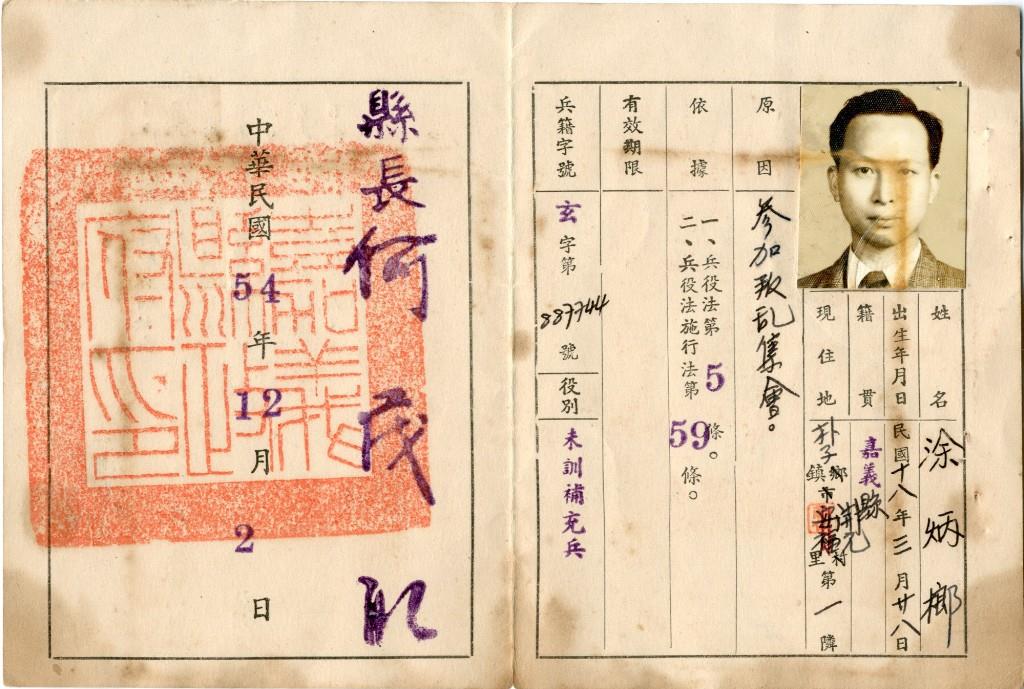 姓名 涂炳榔
出生年月日 民國十八年三月廿八日
籍貫 嘉義縣
現住地 朴子鄉鎮市開元里村第一隣
原因 參加叛乱集會。
依據 一、兵役法第5條。
二、兵役法施行法第59條。
有效期限
兵籍字號 玄字第887744號
役別 未訓補充兵
縣長何茂取
中華民國54年12月2日